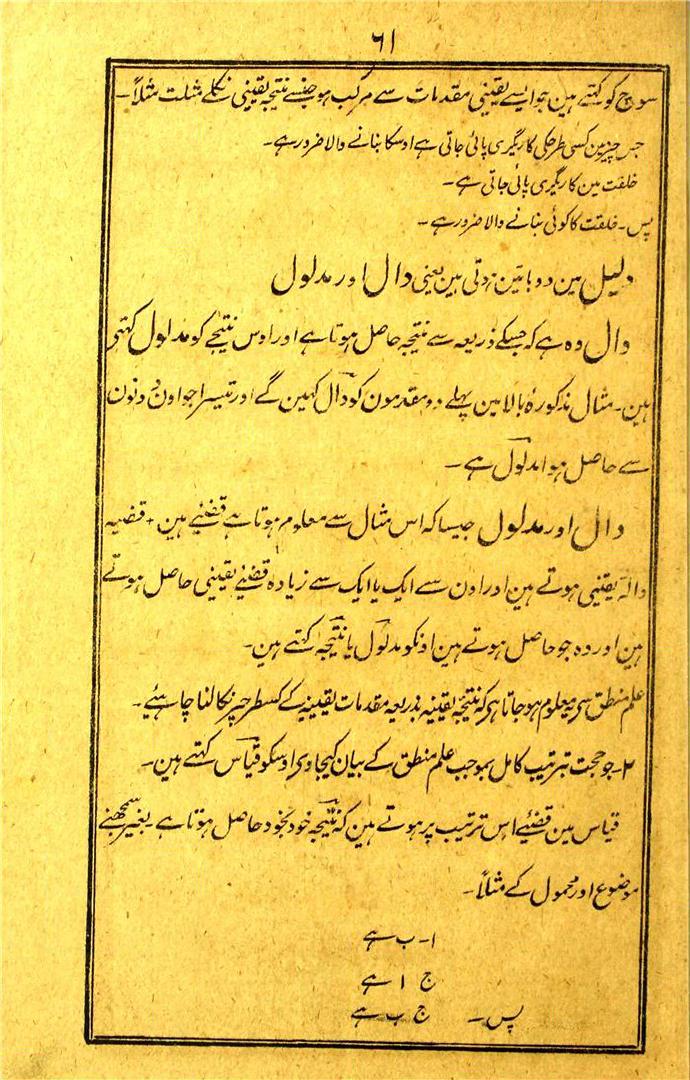 ٦١
سوچ کو کہتے ہین جو ایسے یقینی مقدمات سے مرکب ہو جنسے نتیجہ یقینی نکلے مثلث مثلاً۔
جس چیز مین کسی طرحکی کاریگری پائی جاتی ہے اوسکا بنانے والا ضرور ہے۔
خلقت مین کاریگری پائی جاتی ہے۔
پس۔ خلقت کا کوئی بنانے والا ضرور ہے۔
دلیل مین دو باتین ہوتی ہین یعنی دال اور مدلول
دال وہ ہے کہ جسکے ذریعہ سے نتیجہ حاصل ہوتا ہے اور اوس نتیجے کو مدلول کہتی
ہین۔ مثال مذکورۂ بالا مین پہلے دو مقدمون کو دال کہین گے اور تیسرا جو اون دونون
سے حاصل ہوا مدلول ہے۔
دال اور مدلول جیسا کہ اس مثال سے معلوم ہوتا ہے قضئے ہین۔ قضیہ
دالہ یقینی ہوتے ہین اور اون سے ایک یا ایک سے زیادہ قضئے یقینی حاصل ہوتے
ہین اور وہ جو حاصل ہوتے ہین اونکو مدلول یا نتیجہ کہتے ہین۔
علم منطق سی یہ معلوم ہوجاتا ہی کہ نتیجہ یقینیہ بذریعہ مقدمات یقینیہ کے کسطرحپر نکالنا چاہیئے۔
۲۔ جو حجت بترتیب کامل بموجب علم منطق کے بیان کیجاوی اوسکو قیاس کہتے ہین۔
قیاس مین قضئے اس ترتیب پر ہوتے ہین کہ نتیجہ خود بخود حاصل ہوتا ہے۔ بغیر سمجھنے
موضوع اور محمول کے مثلاً۔
ا۔ ب ہے
ج ا ہے
پس۔ ج ب ہے